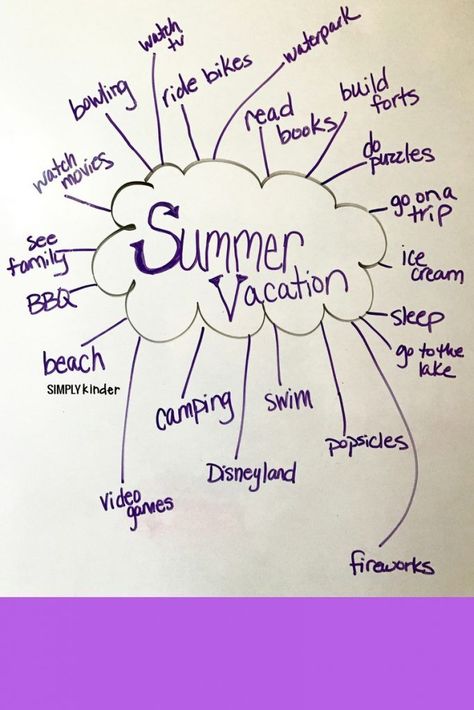 watch
tv
waterpark
ride bikes
bowling
build
forts
read
books
do
puzzles
watch
movies
go on a
trip
Summer
Vacation
see
family
ice
cream
BBQ
sleep
go to the
lake
beach
SIMPLYkinder
camping
swim
popsicles
Disneyland
video
games
fireworks